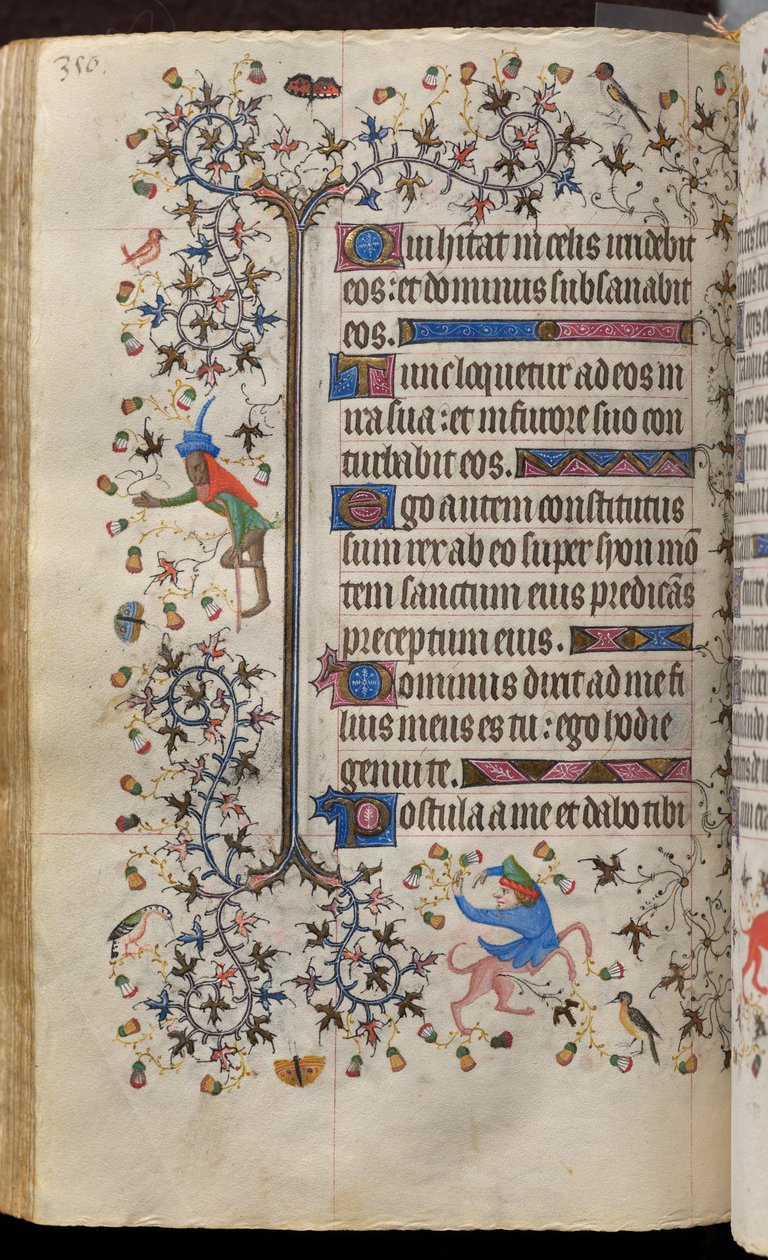 350.
Qui hitat in celis irridebit
eos: et dominus subsanabit
eos.
Tunc loquetur ad eos in
ira sua: et in furore suo con
turbabit eos.
Ego autem constitutus
sum rex ab eo super syon mō
tem sanctum eius predicās
preceptum eius.
Dominus dixit ad me fi
lius meus es tu: ego hodie
genui te.
Postula a me et dabo tibi